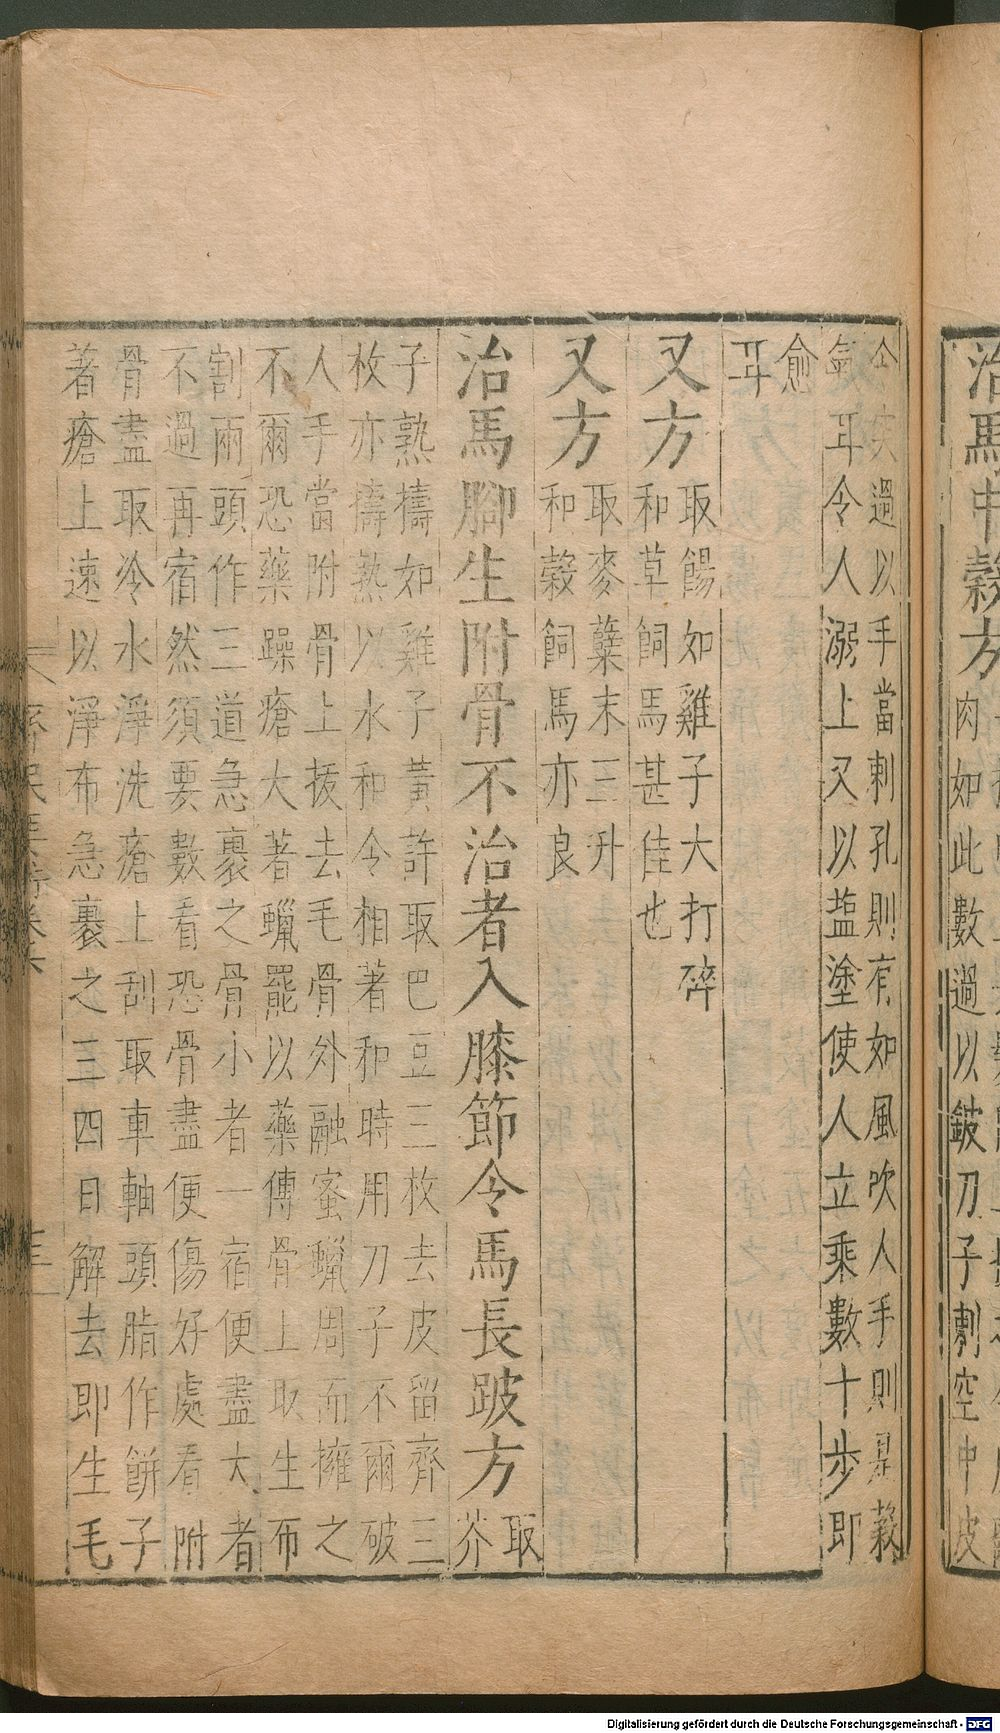 治馬中穀方
肉如此數過以鈹刀子刺空中皮
令突過以手當刺孔則有如風吹人手則是穀
氣耳令人溺上又以塩塗使人立乘數十步即
愈
耳
又方
取餳如雞子大打碎
和草飼馬甚佳也
又方
取麥蘖末三升
和穀飼馬亦良
治馬腳生附骨不治者入膝節令馬長跛方
取
芥
子熟擣如雞子黃許取巴豆三枚去皮留齊三
枚亦擣熟以水和令相著和時用刀子不爾破
人手當附骨上拔去毛骨外融蜜蠟周而擁之
不爾恐藥躁瘡大著蠟罷以藥傅骨上取生布
割兩頭作三道急裹之骨小者一宿便盡大者
不過再宿然須要數看恐骨盡便傷好處看附
骨盡取冷水淨洗瘡上刮取車軸頭脂作餅子
著瘡上速以淨布急裹之三四日解去即生毛
Digitalisierung gefördert durch die Deutsche Forschungsgemeinschaft - DFG